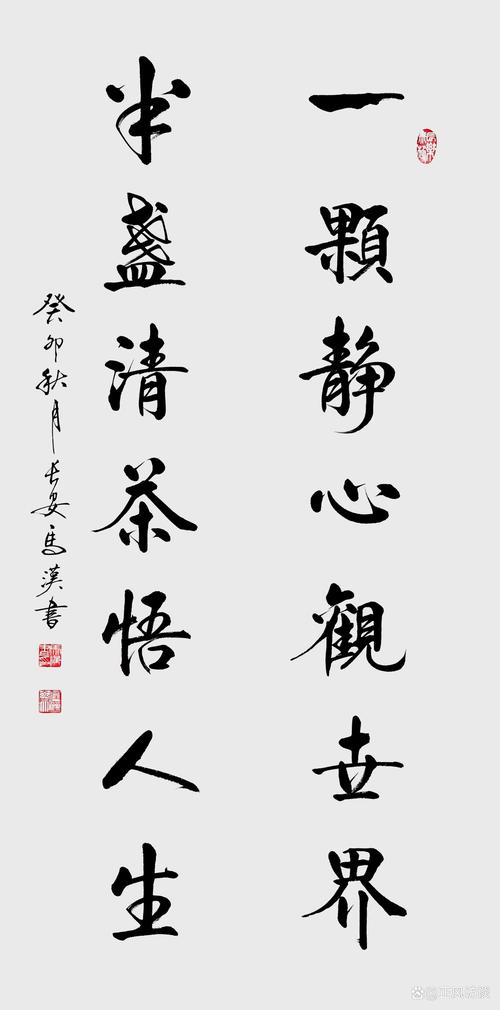 一顆靜心觀世界
半盞清茶悟人生
癸卯秋月长安馬漢書